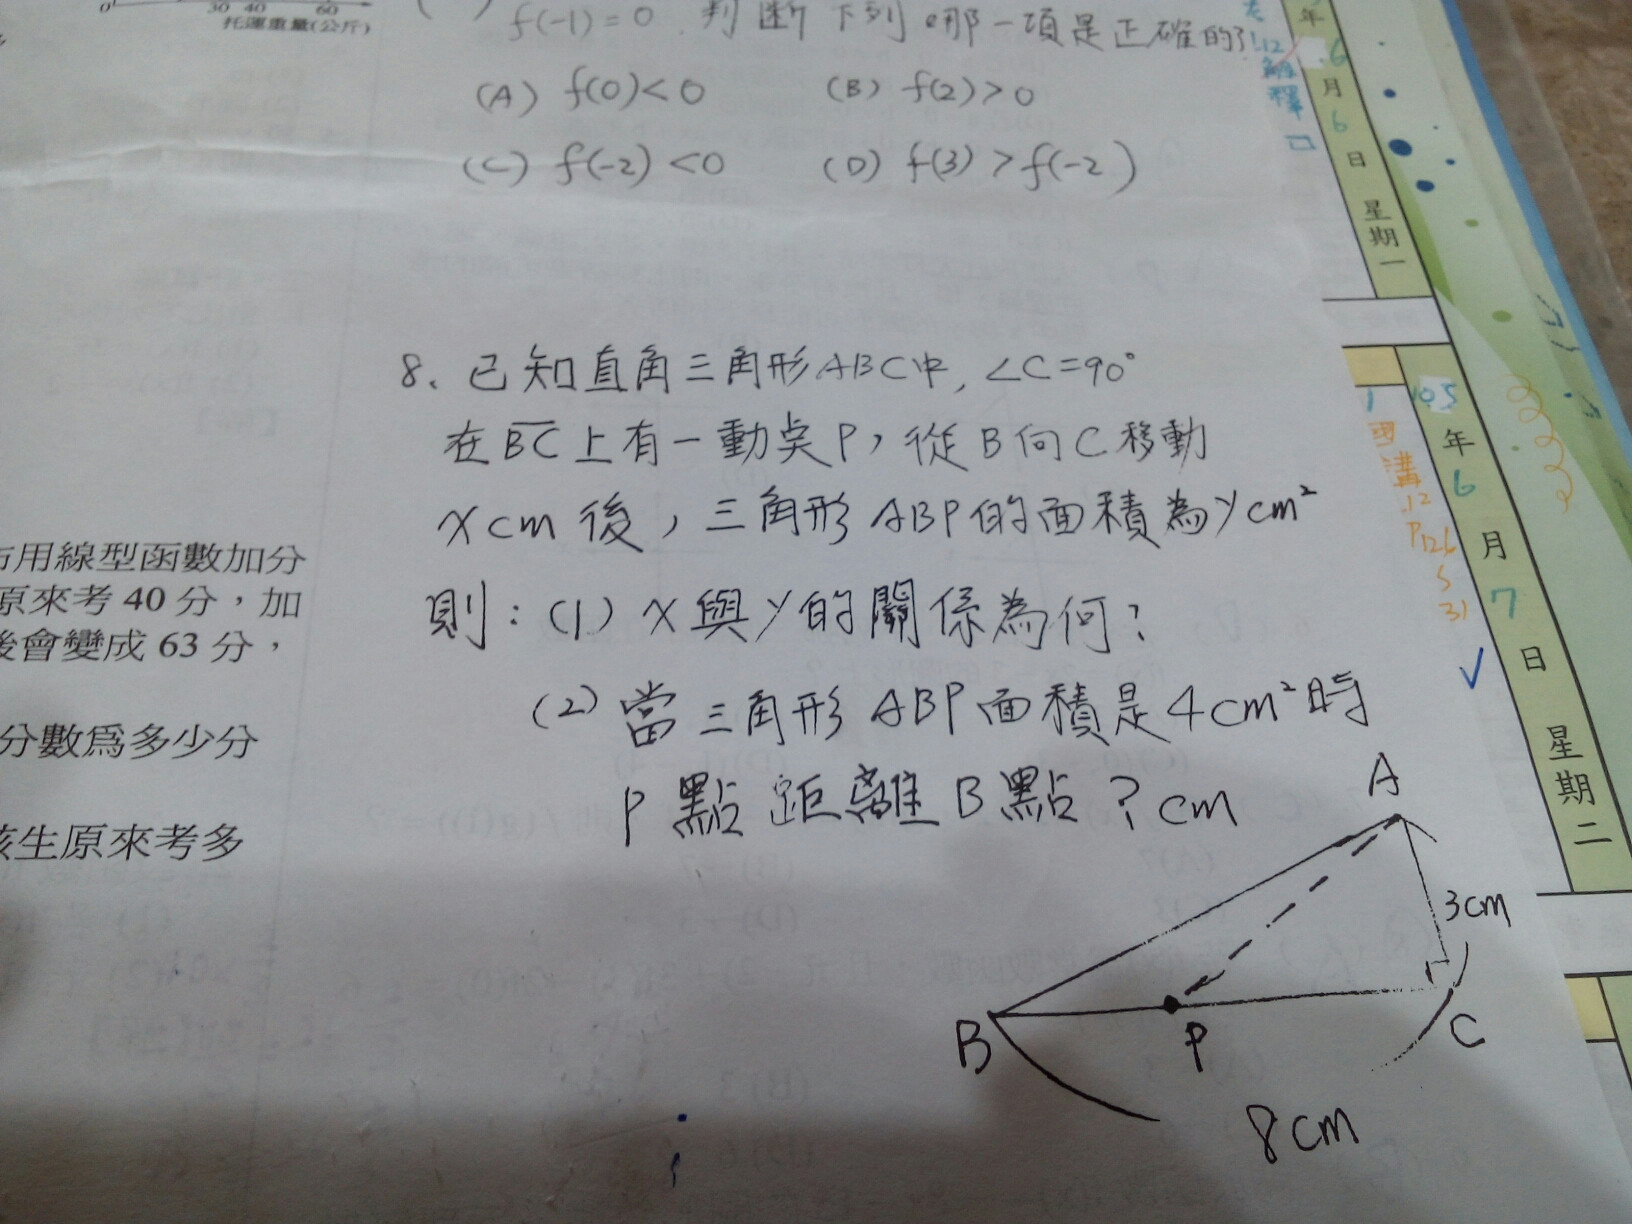 0 30 40 60
托運重量(公斤)
f(-1)=0. 判斷下列哪一項是正確的?
(A) f(0)<0 (B) f(2)>0
(C) f(-2)<0 (D) f(3)>f(-2)
8. 已知直角三角形ABC中, ∠C=90°
在BC上有一動点P, 從B向C移動
x cm 後, 三角形ABP的面積為y cm²
則: (1) x與y的關係為何?
(2) 當三角形ABP面積是4cm²時
P點距離B點?cm
A
3cm
B
P
C
8cm
用線型函數加分
原來考 40 分,加
後會變成 63 分,
分數爲多少分
該生原來考多
年
6
月
6
日
星期一
解釋
105
年
6
月
7
日
星期二